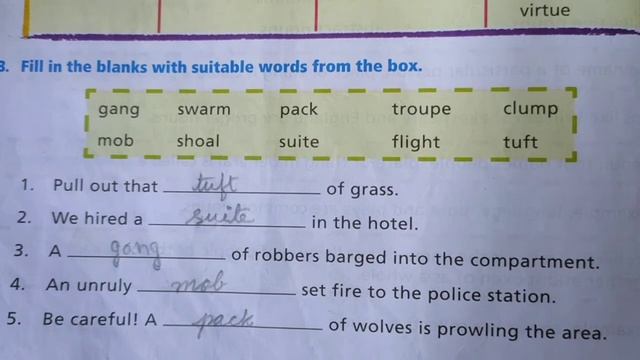 virtue
3. Fill in the blanks with suitable words from the box.
gang swarm pack troupe clump
mob shoal suite flight tuft
1. Pull out that tuft of grass.
2. We hired a suite in the hotel.
3. A gang of robbers barged into the compartment.
4. An unruly mob set fire to the police station.
5. Be careful! A pack of wolves is prowling the area.